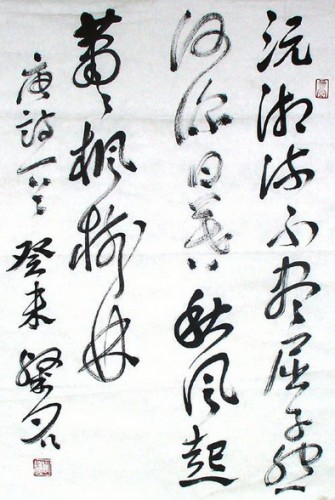 沅湘流不尽屈子怨
何深日暮秋风起
萧萧枫树林
唐诗一首 癸未